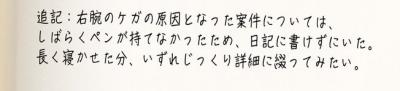 追記：右腕のケガの原因となった案件については、
しばらくペンが持てなかったため、日記に書けずにいた。
長く寝かせた分、いずれじっくり詳細に綴ってみたい。